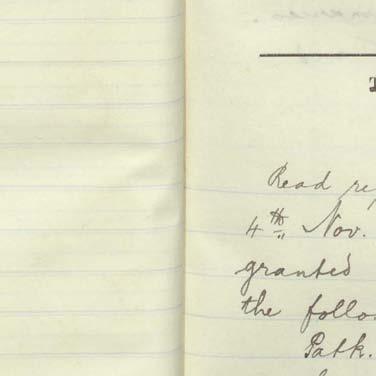 T
Read rep
4th Nov.
granted
the follo
Patk.